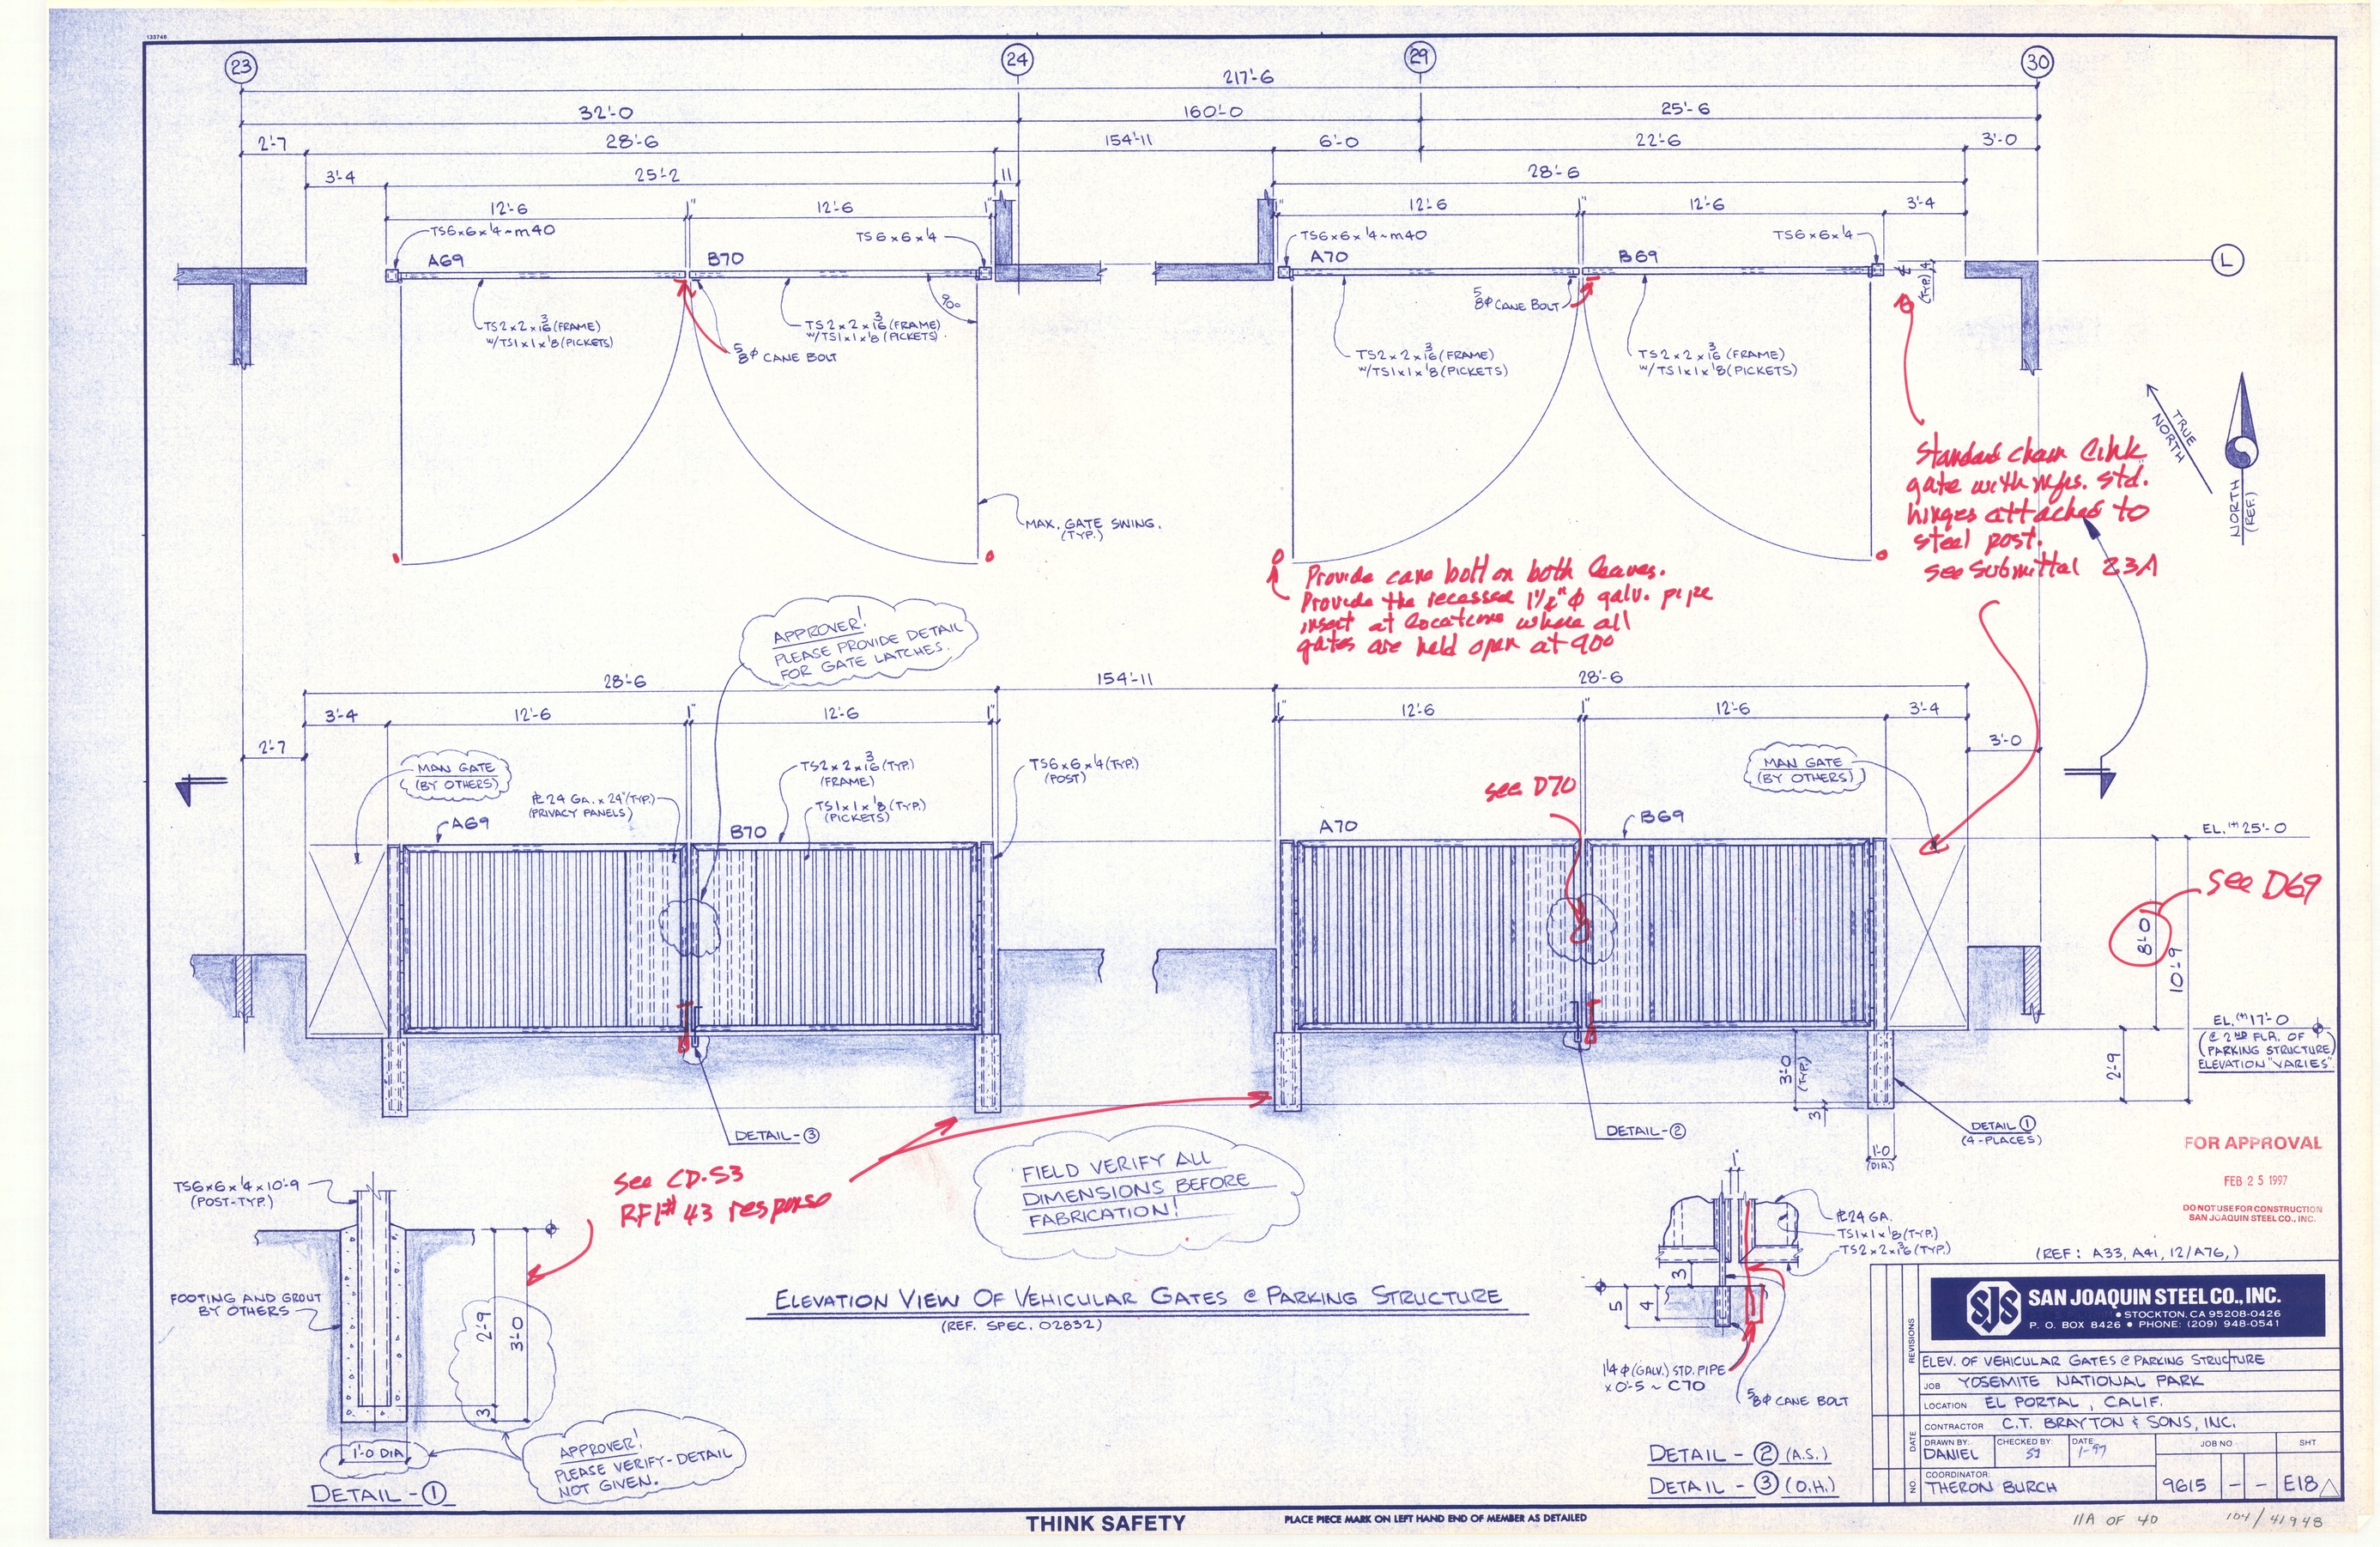 133746
23
24
29
30
217'-6
32'-0
160'-0
25'-6
2'-7
28'-6
154'-11
6'-0
22'-6
3'-0
3'-4
25'-2
11
28'-6
12'-6
1"
12'-6
1"
1"
12'-6
1"
12'-6
3'-4
TS6x6x1/4~m40
TS6x6x1/4
TS6x6x1/4~m40
TS6x6x1/4
A69
B70
A70
B69
L
4
(TYP.)
90°
TS2x2x3/16(FRAME)
W/TS1x1x1/8(PICKETS)
TS2x2x3/16(FRAME)
W/TS1x1x1/8(PICKETS)
5/8ϕ CANE BOLT
5/8ϕ CANE BOLT
TS2x2x3/16(FRAME)
W/TS1x1x1/8(PICKETS)
TS2x2x3/16(FRAME)
W/TS1x1x1/8(PICKETS)
TRUE
NORTH
NORTH
(REF.)
Standard chain link
gate with mfrs. std.
hinges attached to
steel post.
see Submittal 23A
MAX. GATE SWING.
(TYP.)
Provide cane bolt on both leaves.
Provide the recessed 1 1/2" ϕ galv. pipe
insert at locations where all
gates are held open at 90°
APPROVER!
PLEASE PROVIDE DETAIL
FOR GATE LATCHES.
28'-6
154'-11
28'-6
3'-4
12'-6
1"
12'-6
1"
1"
12'-6
1"
12'-6
3'-4
2'-7
3'-0
MAN GATE
(BY OTHERS)
PL 24 GA. x 24"(TYP.)
(PRIVACY PANELS)
TS2x2x3/16(TYP.)
(FRAME)
TS1x1x1/8(TYP.)
(PICKETS)
TS6x6x1/4(TYP.)
(POST)
see D70
MAN GATE
(BY OTHERS)
A69
B70
A70
B69
EL.(+)25'-0
see D69
8'-0
10'-9
EL.(+)17'-0
(@ 2ND FLR. OF
PARKING STRUCTURE)
ELEVATION "VARIES"
3'-0
(TYP.)
2'-9
3
1'-0
(DIA.)
DETAIL-3
DETAIL-2
DETAIL 1
(4-PLACES)
see CD-S3
RFI# 43 response
FIELD VERIFY ALL
DIMENSIONS BEFORE
FABRICATION!
FOR APPROVAL
FEB 25 1997
DO NOT USE FOR CONSTRUCTION
SAN JOAQUIN STEEL CO., INC.
(REF: A33, A41, 12/A76,)
TS6x6x1/4x10'-9
(POST-TYP.)
FOOTING AND GROUT
BY OTHERS
2'-9
3'-0
3
1'-0 DIA
APPROVER!
PLEASE VERIFY-DETAIL
NOT GIVEN.
DETAIL-1
ELEVATION VIEW OF VEHICULAR GATES @ PARKING STRUCTURE
(REF. SPEC. 02832)
1"
PL 24 GA.
TS1x1x1/8(TYP.)
TS2x2x3/16(TYP.)
3
5
4
1 1/4 ϕ(GALV.) STD. PIPE
x 0'-5 ~ C70
5/8ϕ CANE BOLT
DETAIL - 2 (A.S.)
DETAIL - 3 (O.H.)
SJS
SAN JOAQUIN STEEL CO., INC.
• STOCKTON, CA 95208-0426
P. O. BOX 8426 • PHONE: (209) 948-0541
REVISIONS
DATE
NO.
ELEV. OF VEHICULAR GATES @ PARKING STRUCTURE
JOB YOSEMITE NATIONAL PARK
LOCATION EL PORTAL, CALIF.
CONTRACTOR C.T. BRAYTON & SONS, INC.
DRAWN BY: DANIEL
CHECKED BY:
DATE: 1-97
JOB NO.
SHT
COORDINATOR: THERON BURCH
9615 - - E18
THINK SAFETY
PLACE PIECE MARK ON LEFT HAND END OF MEMBER AS DETAILED
11A OF 40
104/41948